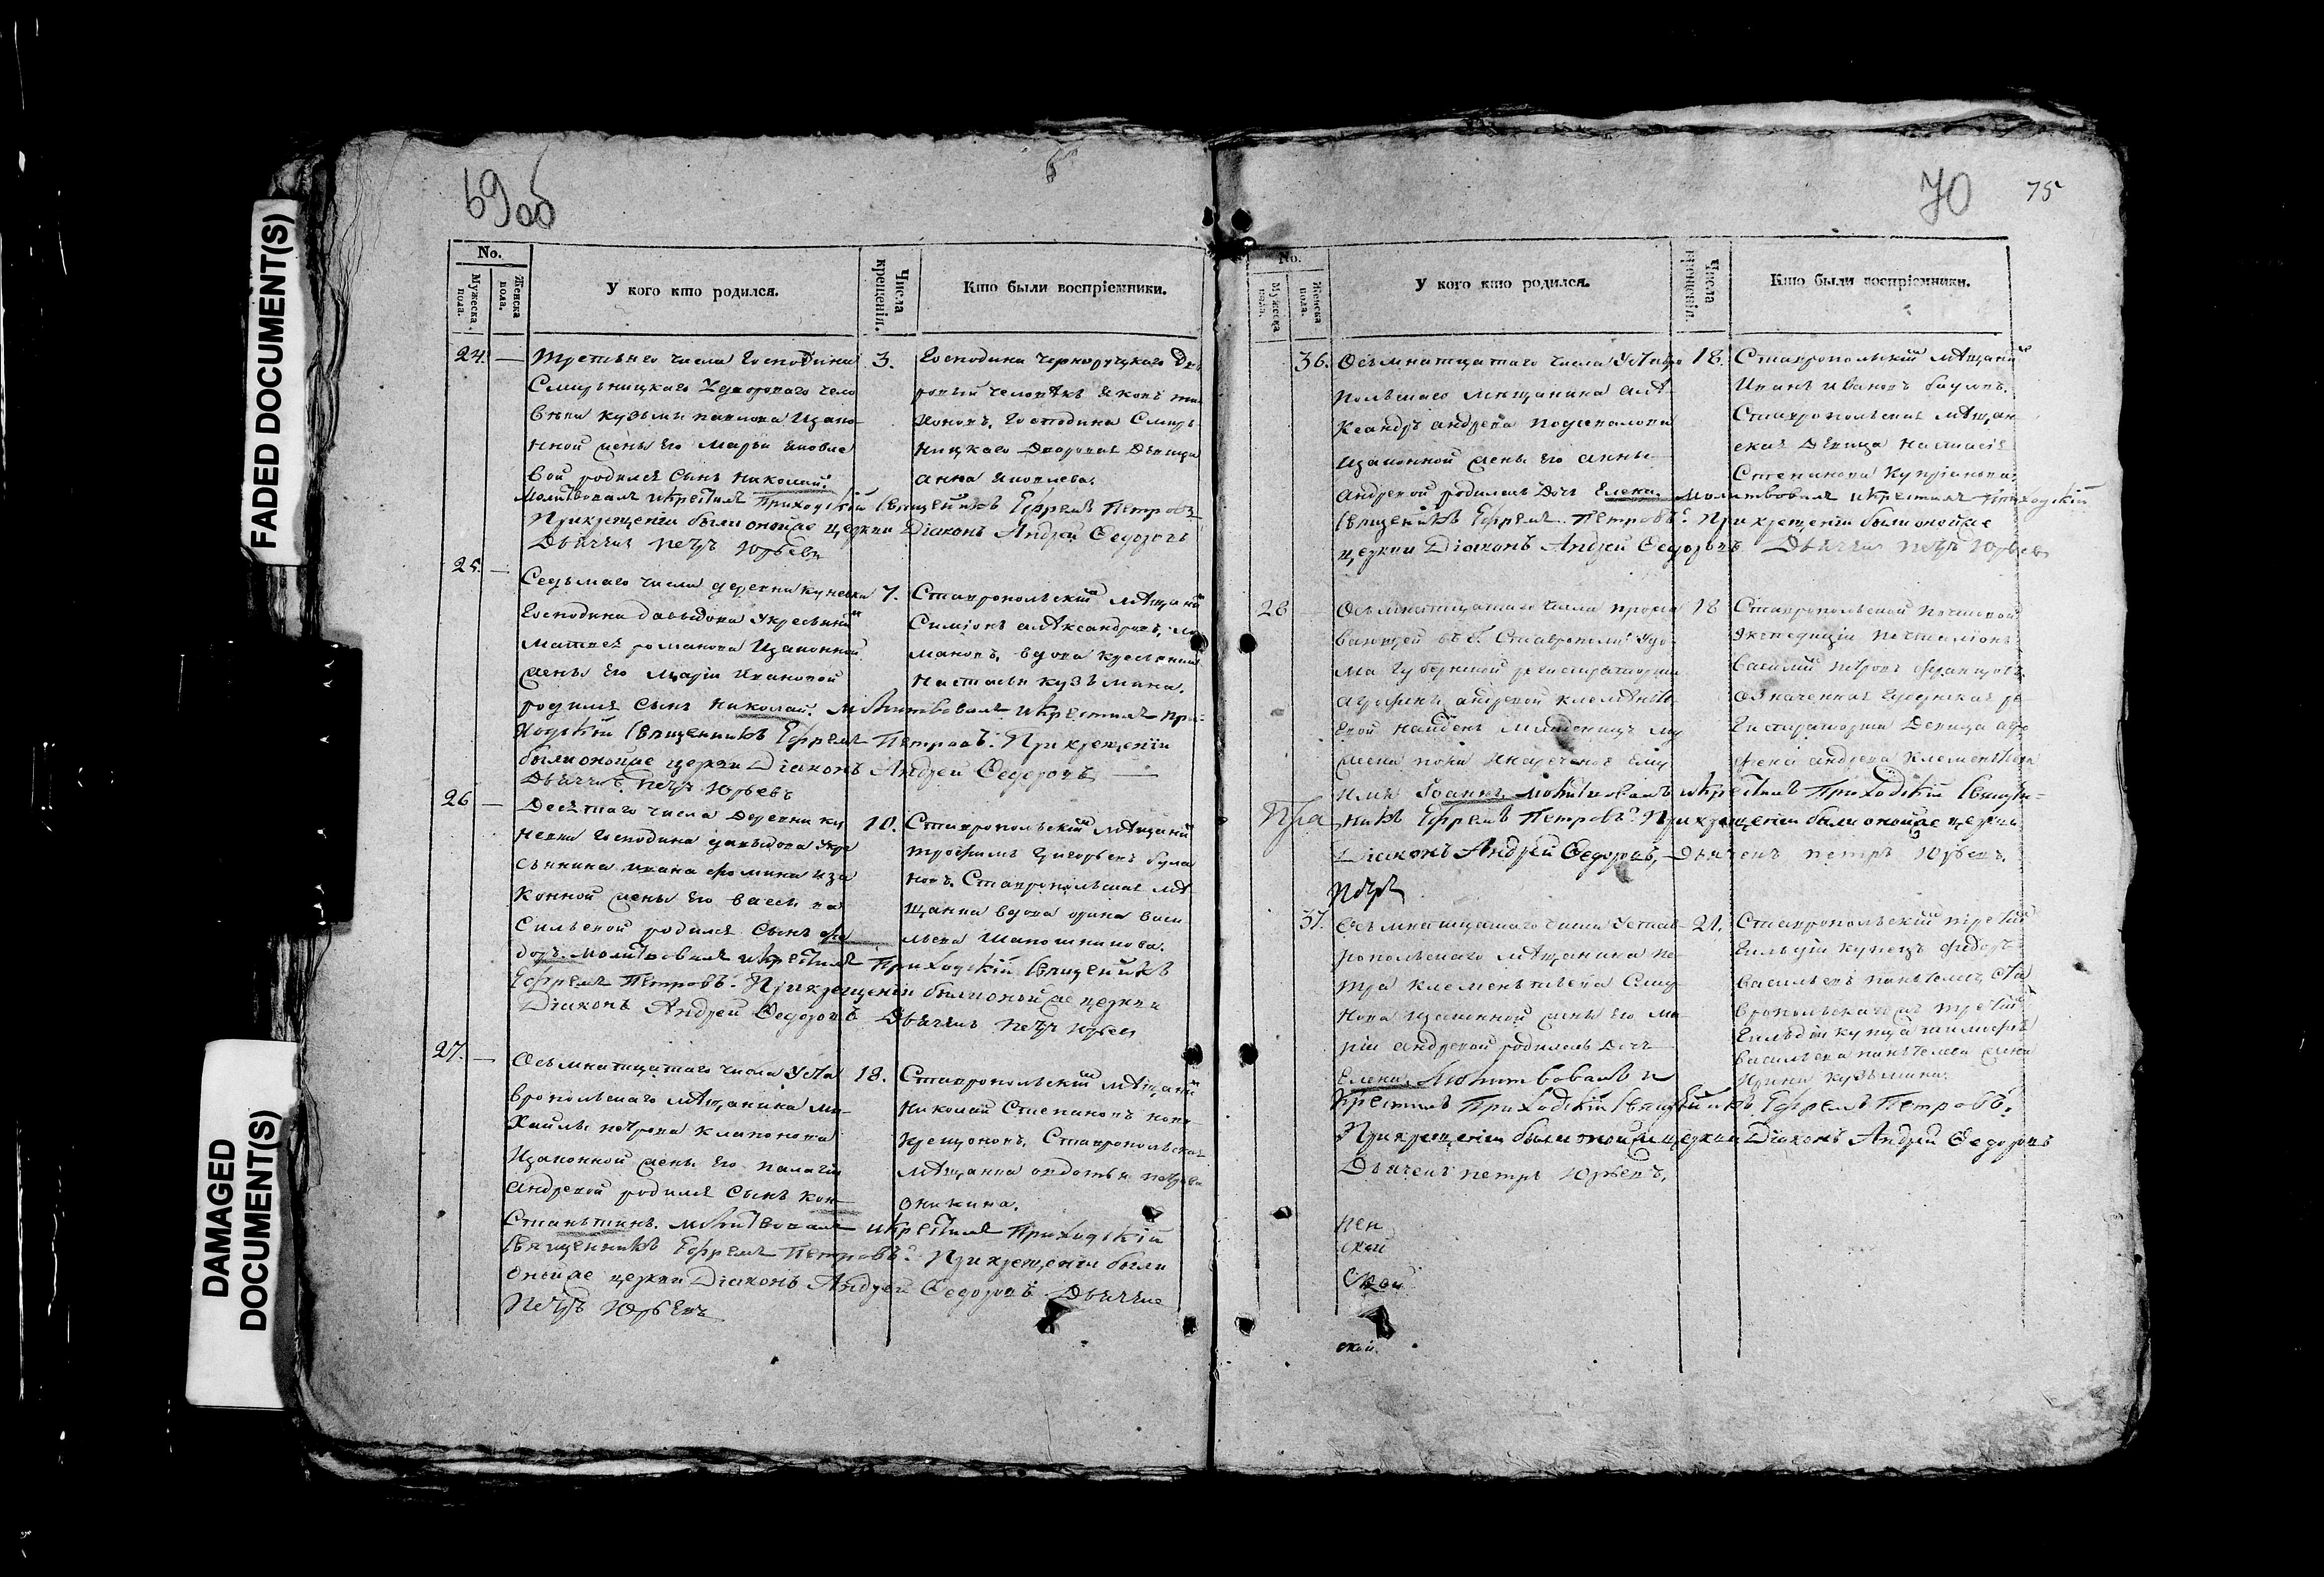 FADED DOCUMENT(S)
DAMAGED DOCUMENT(S)
69об
No.
Мужеска пола.
Женска пола.
У кого кто родился.
Числа крещенія.
Кто были воспріемники.
24. — Третьяго числа Господина
Смирницкаго Удвороваго чело
века Кузьмы Павлова Изако
нной жены Его Марьи Яковле
вой родился Сынъ Николай.
Молитвовалъ икрестилъ Приходскій Священникъ Ефремъ Петровъ
Прикрещеніи были онойже церкви Діаконъ Андрей Федоровъ
Дьячекъ Петръ Юрьевъ
3.
Господина Черноруцкаго Дво
ровый человѣкъ Яковъ
Господина Смир
ницкаго Дворовая Девица
Анна Яковлева.
25. —
Седьмаго числа деревни Кунеевки
Господина Давыдова Укрестьянин
Матвея Романова Изаконной
жены Его Маріи Ивановой
родился Сынъ Николай. Молитвовалъ икрестилъ При-
ходскій Священникъ Ефремъ Петровъ. Прикрещеніи
были онойже церкви Діаконъ Андрей Федоровъ —
Дьячекъ Петръ Юрьевъ
7.
Ставропольскій мѣщанин
Симіонъ Александровъ,
вдова крестьянин
Настасья Кузьмина.
26 —
Десятаго числа Деревни Ку
неевки Господина Давыдова Укре
стьянина Ивана Фомина Иза
конной жены Его Васи
сильевой родился Сынъ Фе
доръ. Молитвовалъ икрестилъ Приходскій Священникъ
Ефремъ Петровъ. Прикрещеніи были онойже церкви
Діаконъ Андрей Федоровъ Дьячекъ Петръ Юрьевъ
10.
Ставропольскій мѣщанин
Трофимъ Григорьевъ Була
новъ. Ставропольская мѣ
щанка вдова Ирина Васи
льева Шапошникова.
27. —
Осьмнатцатаго числа Уста
вропольскаго мѣщанина Ми-
хайлы Петрова Клапонова
Изаконной жены Его Палагіи
Андреевой родился Сынъ Кон-
стантинъ. Молитвовалъ икрестилъ Приходскій
Священникъ Ефремъ Петровъ. Прикрещеніи были
онойже церкви Діаконъ Андрей Федоровъ Дьячекъ
Петръ Юрьевъ
18.
Ставропольскій мѣщанин
Николай Степановъ Ново
крещеновъ. Ставропольская
мѣщанка Авдотья Петрова
Аникина.
70
75
No.
Мужеска пола.
Женска пола.
У кого кто родился.
Числа крещенія.
Кто были воспріемники.
36. Осьмнатцатаго числа Уставро
польскаго мещанина Алѣ-
ксандръ Андреева
Изаконной жены Его Анны
Андреевой родилась Дочь Елена. Молитвовалъ икрестилъ приходскій
Священникъ Ефремъ Петровъ. Прикрещеніи были онойже
церкви Діаконъ Андрей Федоровъ Дьячекъ Петръ Юрьевъ
18.
Ставропольскій мѣщанин
Иванъ Ивановъ
Ставропольская мѣщан
ская Девица Настасія
Степанова Купріанова.
28 —
Осьмнатцатаго числа прожи
вающей въ г. Ставрополе Удо
ма Губернской регистраторши
Андреевой Клементь
евой найденъ младенецъ му
жеска пола Инаречено Ему
имя Іоаннъ. Молитвовалъ икрестилъ Приходскій Священ-
никъ Ефремъ Петровъ. Прикрещеніи были онойже церкви
Діаконъ Андрей Федоровъ, Дьячекъ Петръ Юрьевъ.
18
Ставропольской Почтовой
Экспедиціи Почталіонъ
Василій Петровъ
означенная Губернская ре
гистраторша Девица
Андреева Клементьева
Пра
Петръ
37. Осьмнатцатаго числа Устав-
ропольскаго мѣщанина Пе-
тра Клементьева Смир
нова Изаконной жены Его Ма-
ріи Андреевой родилась Дочь
Елена. Молитвовалъ и
крестилъ Приходскій Священникъ Ефремъ Петровъ.
Прикрещеніи были онойже церкви Діаконъ Андрей Федоровъ
Дьячекъ Петръ Юрьевъ.
21.
Ставропольскій третей
Гильдіи купецъ Федоръ
Васильевъ Пантелеевъ, Ста
вропольскагожъ третей
Гильдіи купца Тимофея
Васильева Пантелеева жена
Ирина Кузьмина.